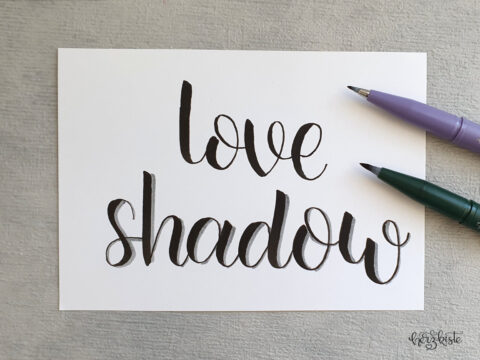 love
shadow
herzkiste